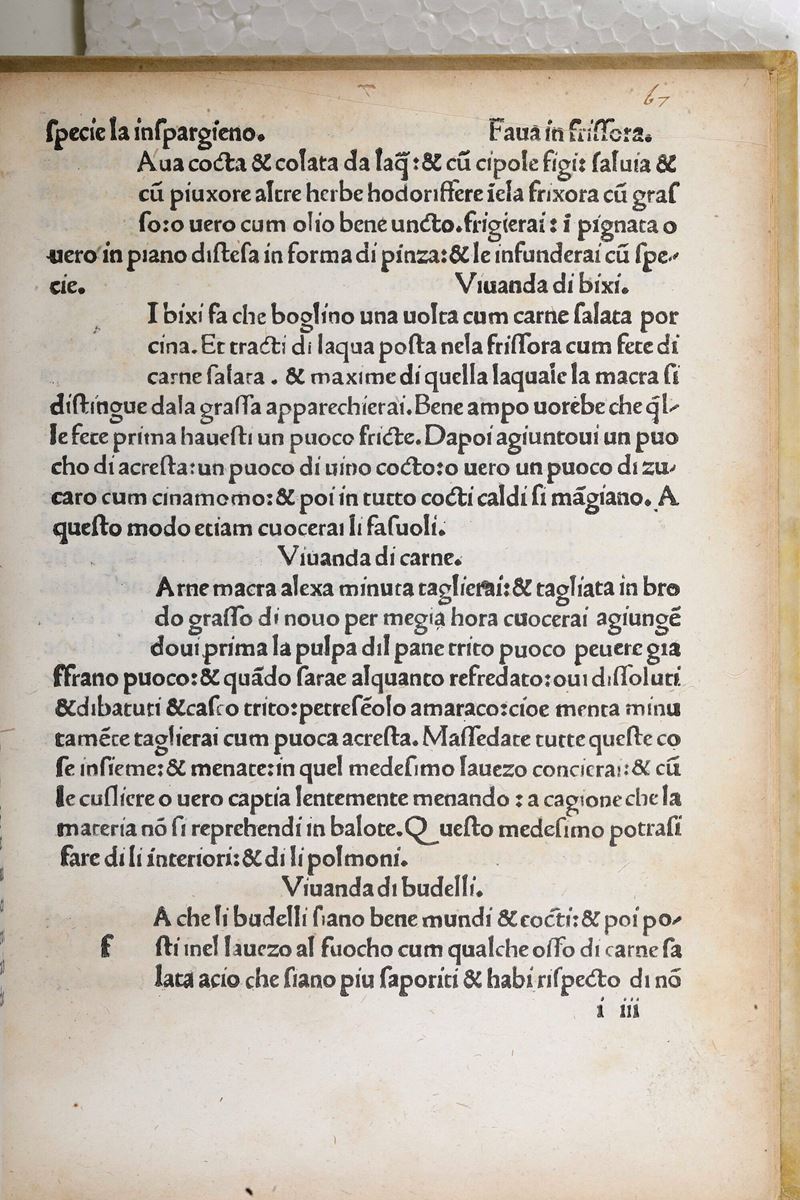 67
ſpecie la inſpargieno. Faua in friſſora.
Aua cocta & colata da laq̃:& cũ cipole figi: ſaluia &
cũ piuxore altre herbe hodoriffere ĩela frixora cũ graſ
ſo:o uero cum olio bene uncto.frigierai: ĩ pignata o
uero in piano diſteſa in forma di pinza:& le infunderai cũ ſpe-
cie. Viuanda di bixi.
I bixi fa che boglino una uolta cum carne ſalata por
cina. Et tracti di laqua poſta nela friſſora cum fete di
carne ſalata. & maxime di quella laquale la macra ſi
diſtingue dala graſſa apparechierai. Bene ampo uorebe che q̃l-
le fete prima haueſti un puoco fricte. Dapoi agiuntoui un puo
cho di acreſta:un puoco di uino cocto:o uero un puoco di zu-
caro cum cinamomo:& poi in tutto cocti caldi ſi mãgiano. A
queſto modo etiam cuocerai li faſuoli.
Viuanda di carne.
Arne macra alexa minuta taglierai:& tagliata in bro
do graſſo di nouo per megia hora cuocerai agiungẽ
doui prima la pulpa dil pane trito puoco peuere gia
ffrano puoco:& quãdo ſarae alquanto refredato:oui diſſoluti
& dibatuti & caſco trito:petreſẽolo amaraco:cioe menta minu
tamẽte taglierai cum puoca acreſta. Maſſedate tutte queſte co
ſe inſieme:& menate:in quel medeſimo lauezo concierai:& cũ
le cuſliere o uero captia lentemente menando : a cagione che la
materia nõ ſi reprehendi in balote. Queſto medeſimo potraſi
fare di li interiori:& di li polmoni.
Viuanda di budelli.
f A che li budelli ſiano bene mundi & cocti:& poi po-
ſti inel lauezo al fuocho cum qualche oſſo di carne ſa
lata acio che ſiano piu ſaporiti & habi riſpecto di nõ
i iii